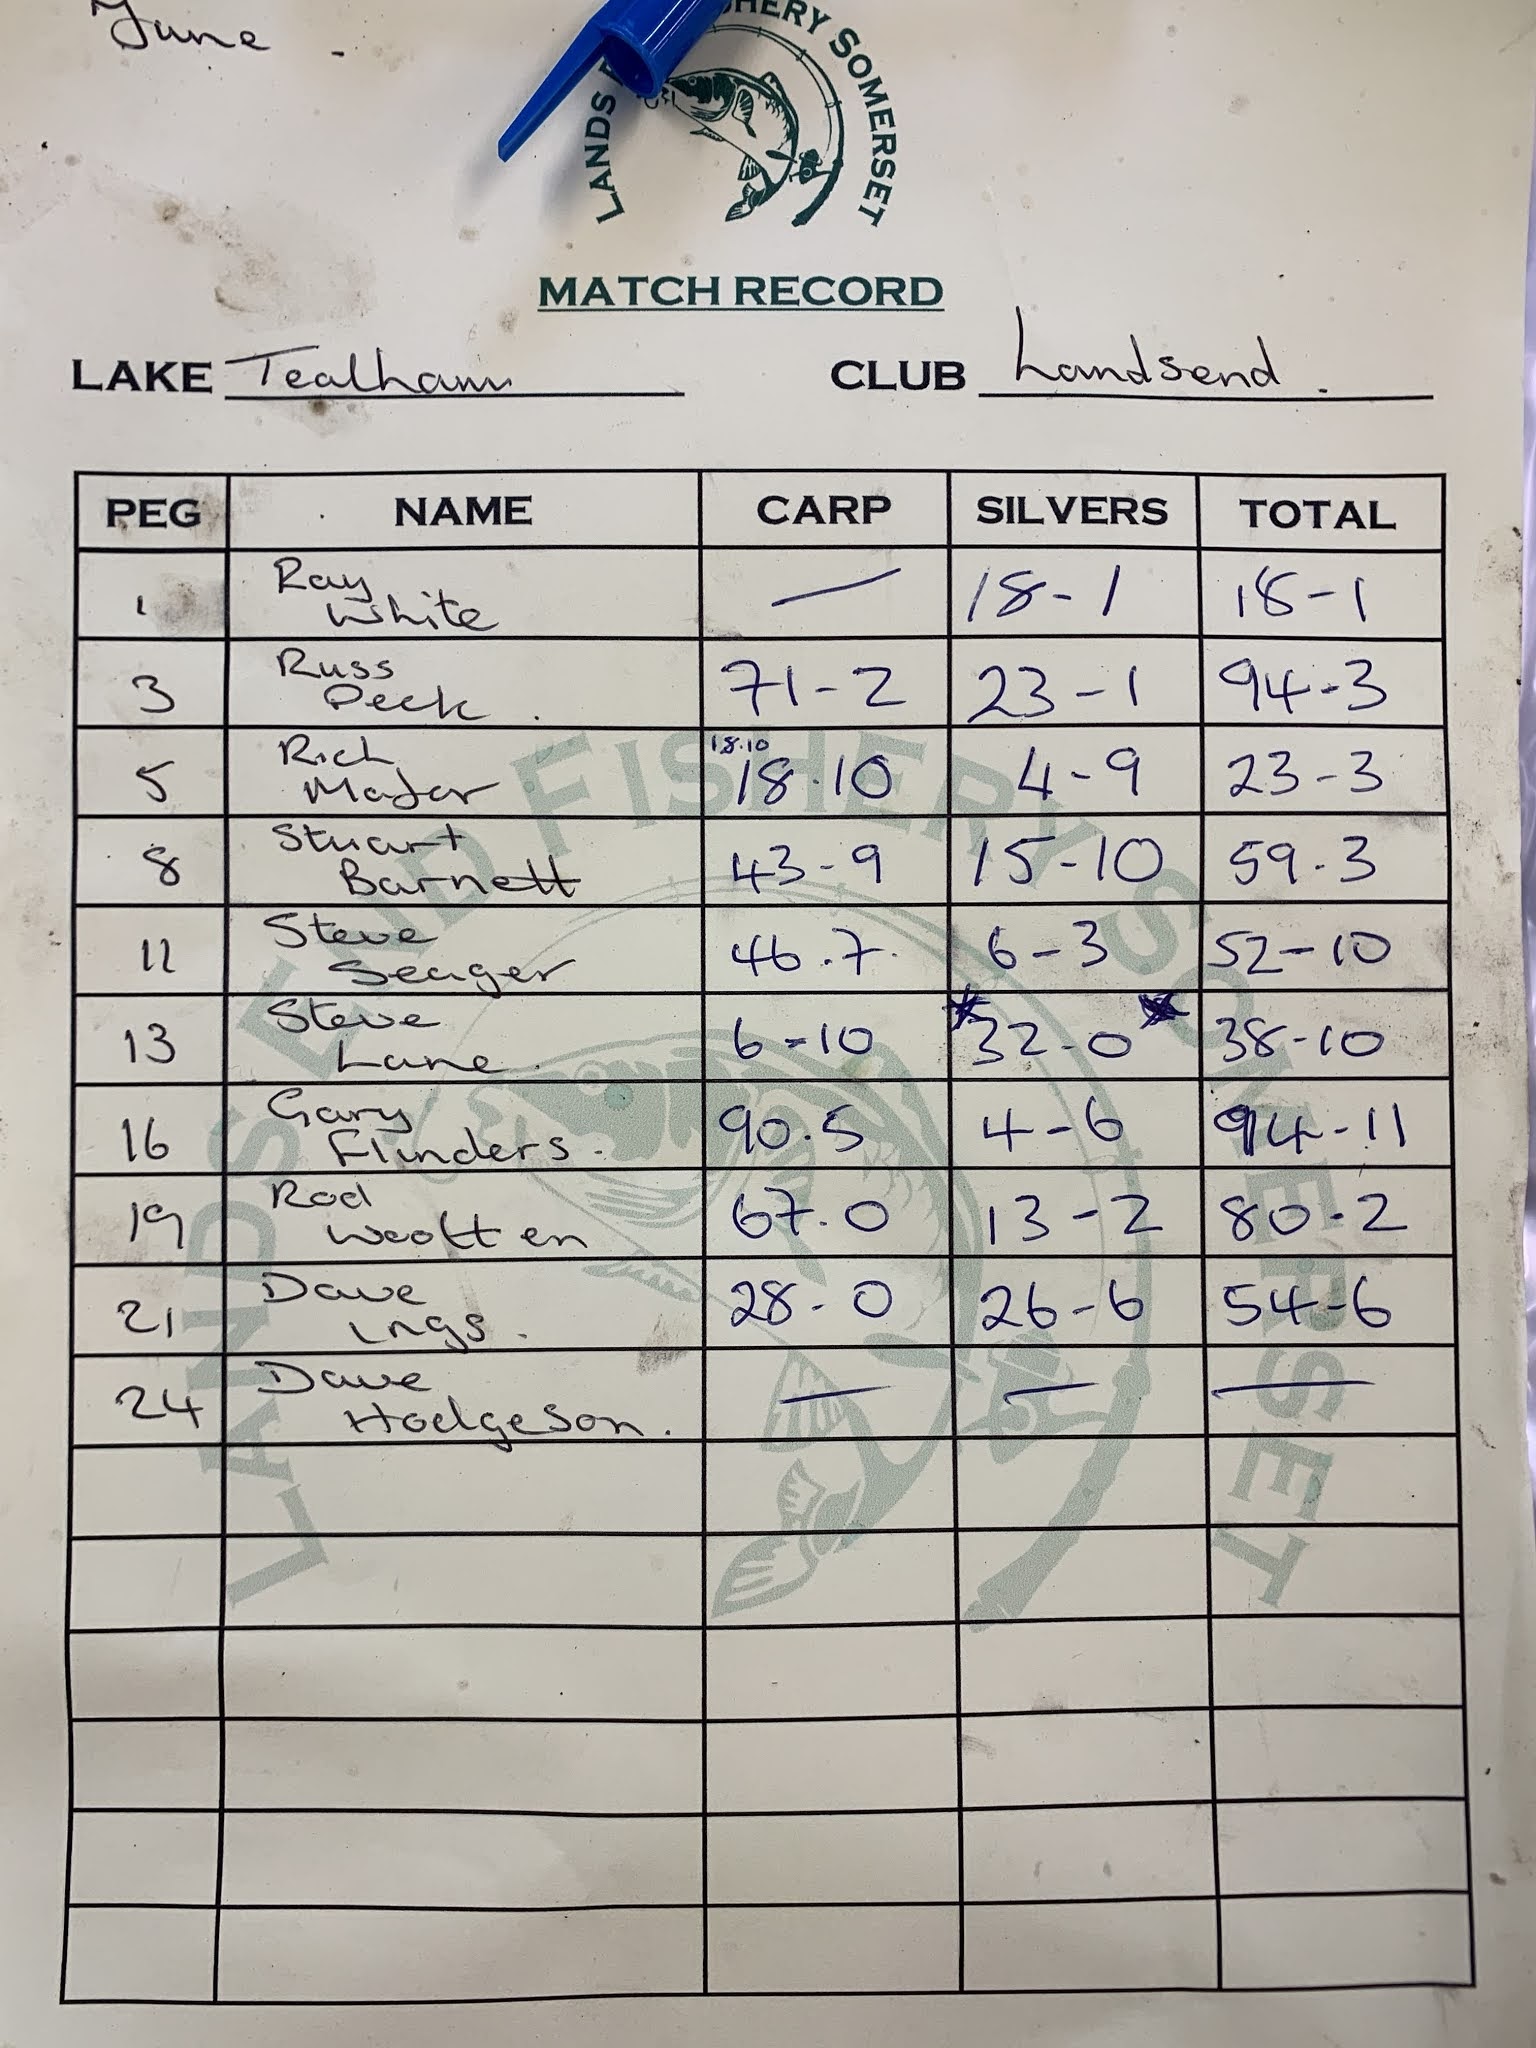 June -
LANDS HERY SOMERSET
MATCH RECORD
LAKE Tealham CLUB Landsend .
PEG NAME CARP SILVERS TOTAL
1 Ray White — 18-1 18-1
3 Russ Peck . 71-2 23-1 94-3
5 Rich Major 18.10 18.10 4-9 23-3
8 Stuart Barnett 43-9 15-10 59.3
11 Steve Seager 46.7. 6-3 52-10
13 Steve Lane . 6-10 *32-0* 38-10
16 Gary Flinders . 90.5 4-6 94-11
19 Rod Wootten 67.0 13-2 80.2
21 Dave Ings . 28-0 26-6 54-6
24 Dave Hodgeson . — — —
LANDS END FISHERY SOMERSET